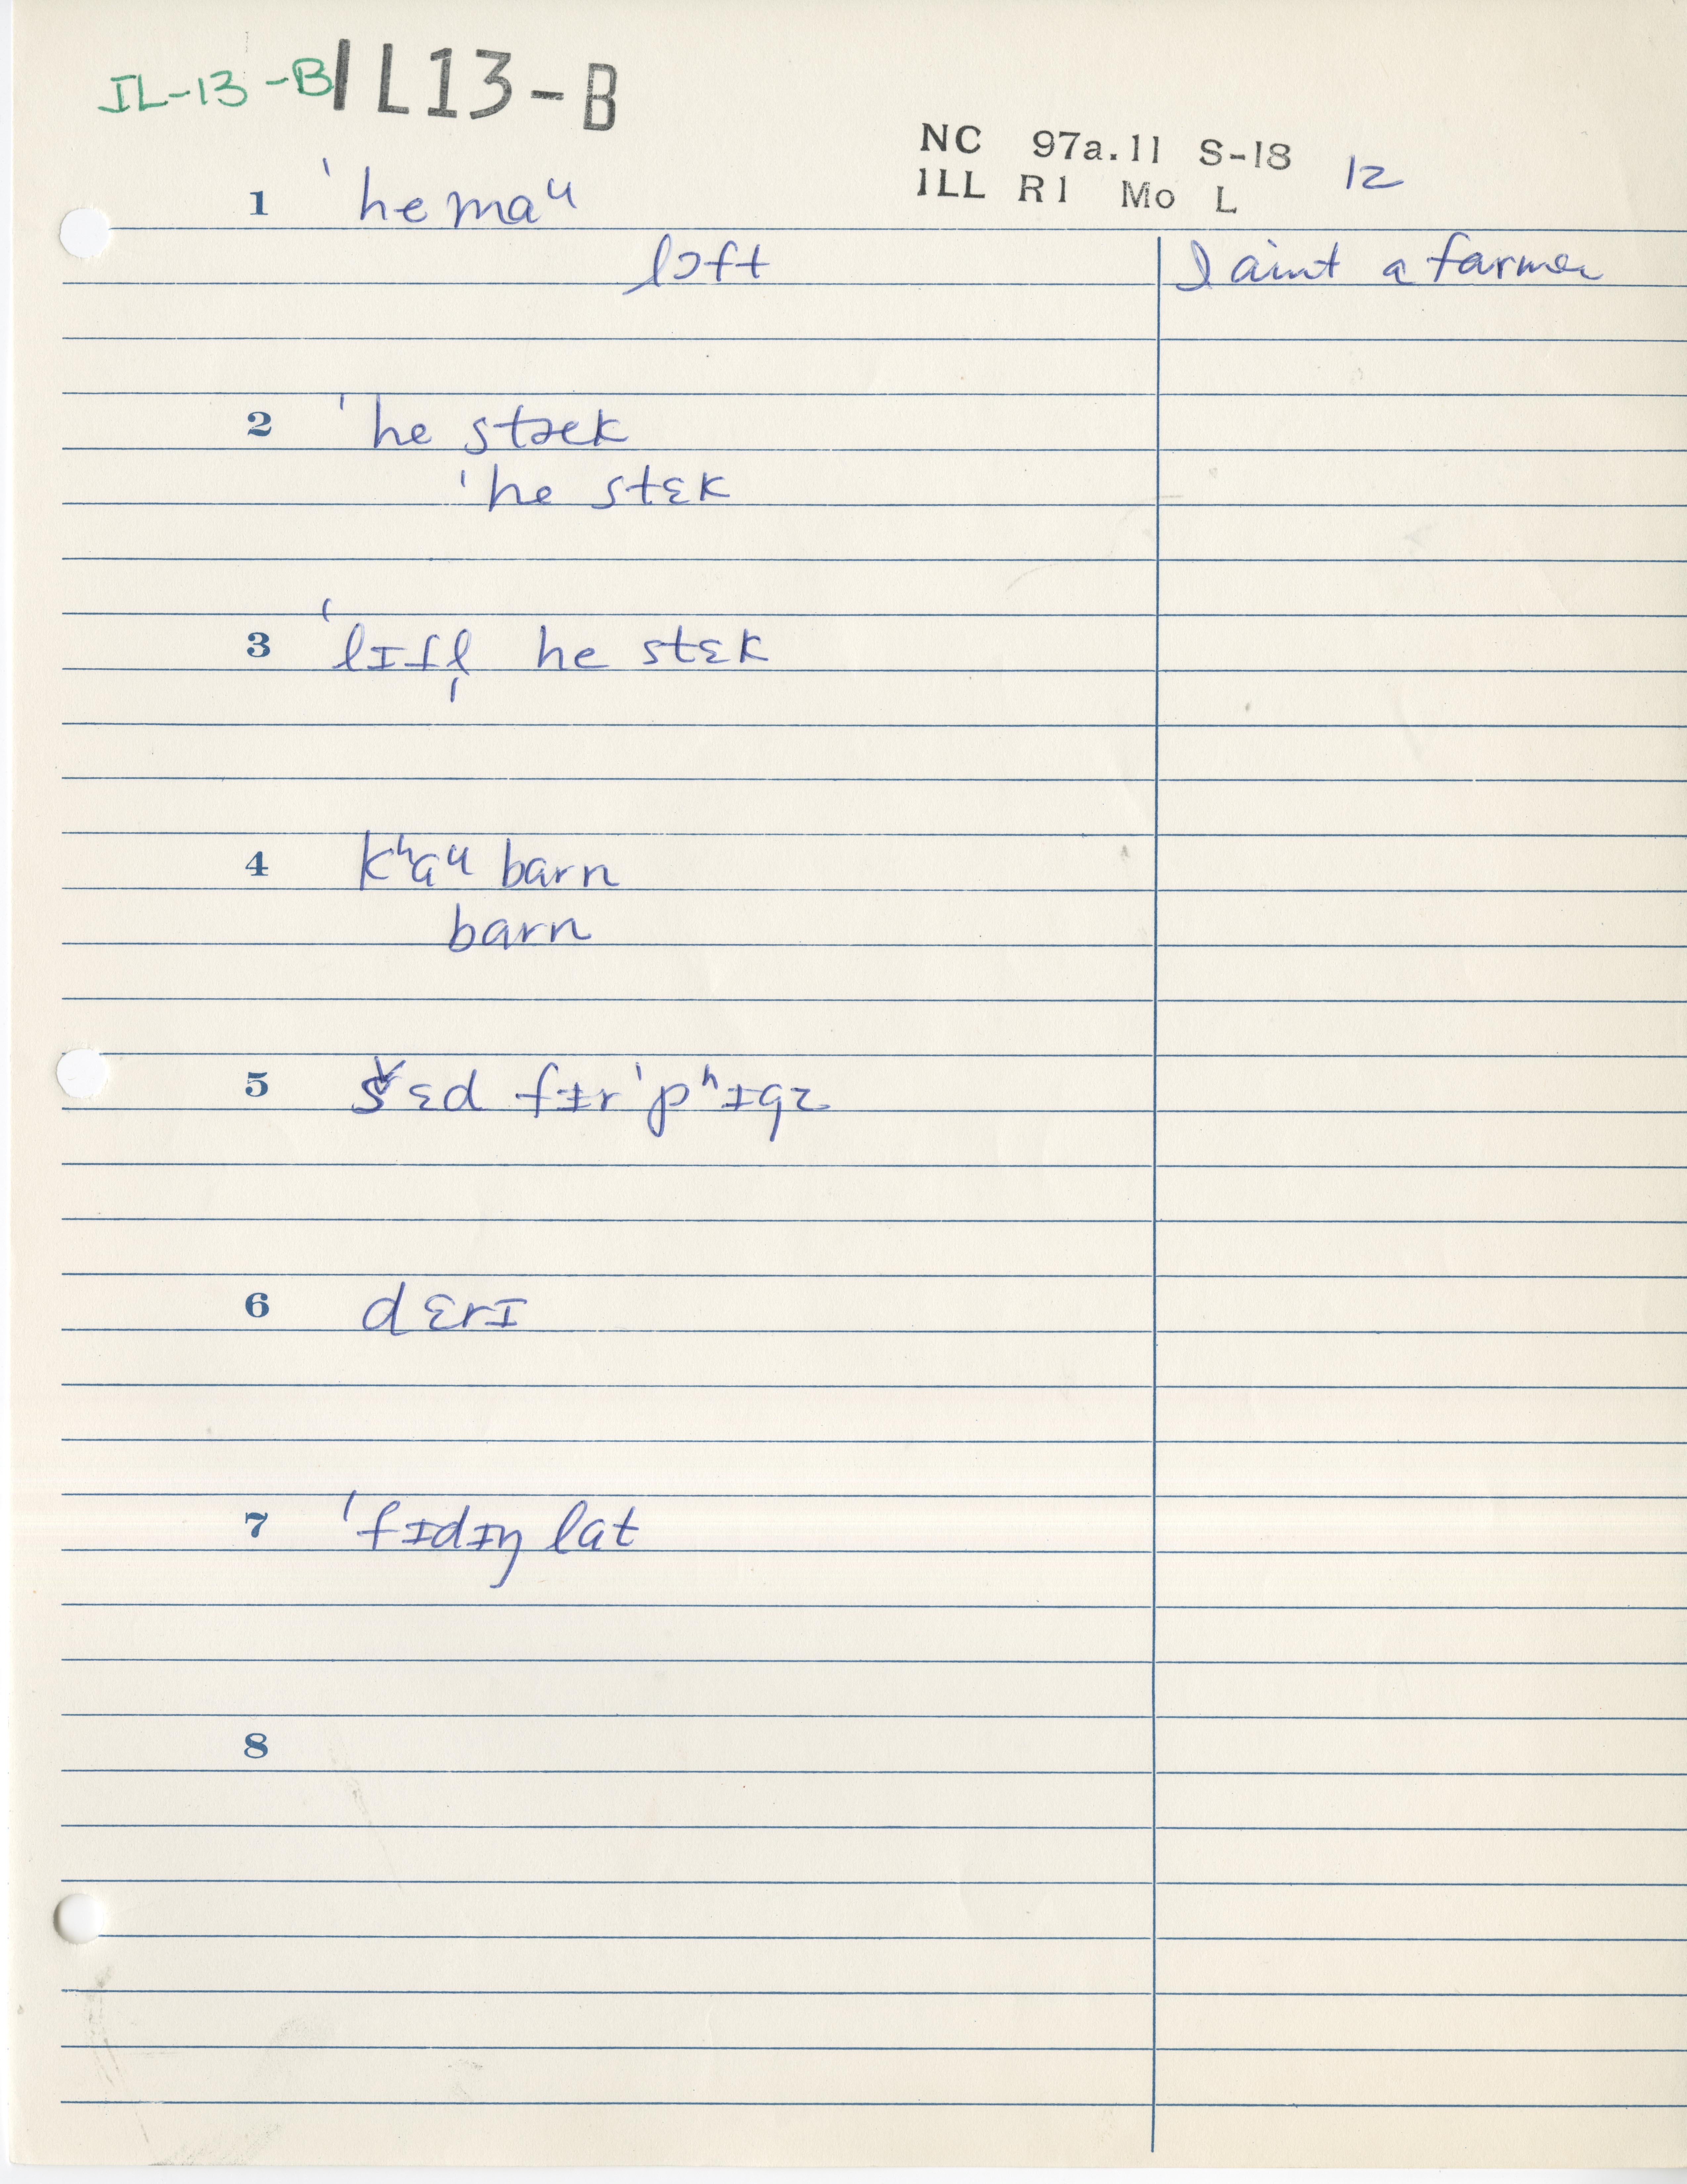 IL-13-B IL13-B
NC 97a.11 S-18 12
ILL R1 Mo L
1 ˈhemaᵘ
lɔft I aint a farmer
2 ˈhe stæk
ˈhe stɛk
3 ˈlɪfl̩ he stɛk
4 kʰɑᵘ barn
barn
5 šɛd fɪr ˈpʰɪgz
6 dɛrɪ
7 ˈfɪdɪŋ lat
8